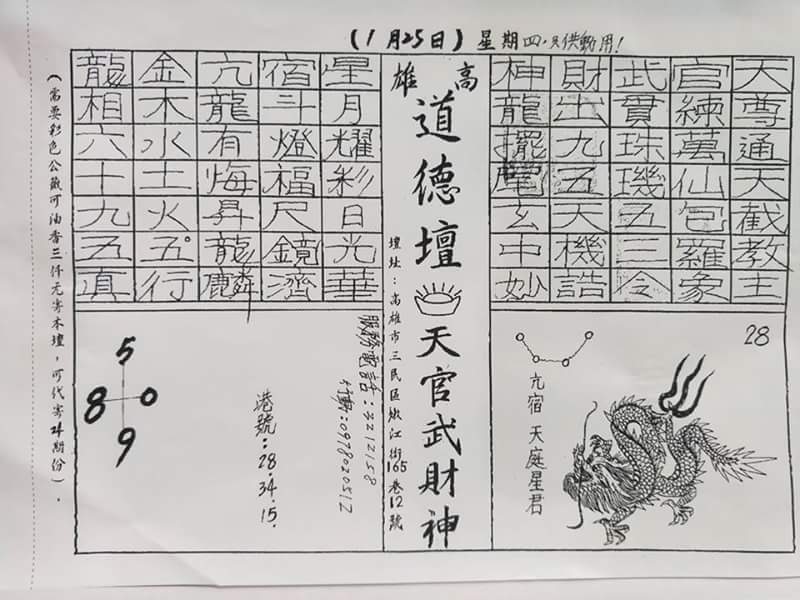 (1月25日)星期四.只供用!
天尊通天截教主
官練萬仙包羅象
武貫珠璣五三令
財出九五天機誥
神龍擺尾玄中妙
28
亢宿 天庭星君
高雄
道德壇 天官武財神
壇址：高雄市三民區嫩江街165巷12號
星月耀彩日光華
宿斗燈福尺鏡濟
亢龍有悔昇龍麟
金木水土火五行
龍相六十九五真
服務電話：3212158
行動：0978020512
港號：28.34.15.
5
8 0
9
(需要彩色公可油香三仟元寄本壇，可代寄24期份)。